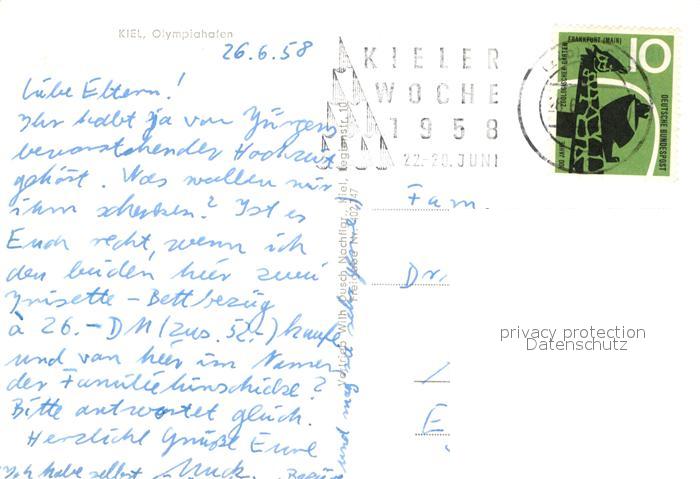 KIEL, Olympiahafen
26.6.58
Liebe Eltern!
Ihr habt ja von Jürgens
bevorstehender Hochzeit
gehört. Was wollen wir
ihm schenken? Ist es
Euch recht, wenn ich
den beiden hier zwei
Irisette - Bettbezüg
à 26.- DM (zus. 52.-) kaufe
und von hier im Namen
der Familie hinschicke?
Bitte antwortet gleich.
Herzliche Grüße Eure
Ich habe selbst
Muck.
und mag sie sehr gerne
Vertrieb Wilh. Busch Nachflgr., Kiel,
KIELER
WOCHE
1958
22.-29. JUNI
FRANKFURT (MAIN)
100 JAHRE ZOOLOGISCHER GARTEN
10
DEUTSCHE BUNDESPOST
Fam.
Dr.
E
privacy protection
Datenschutz